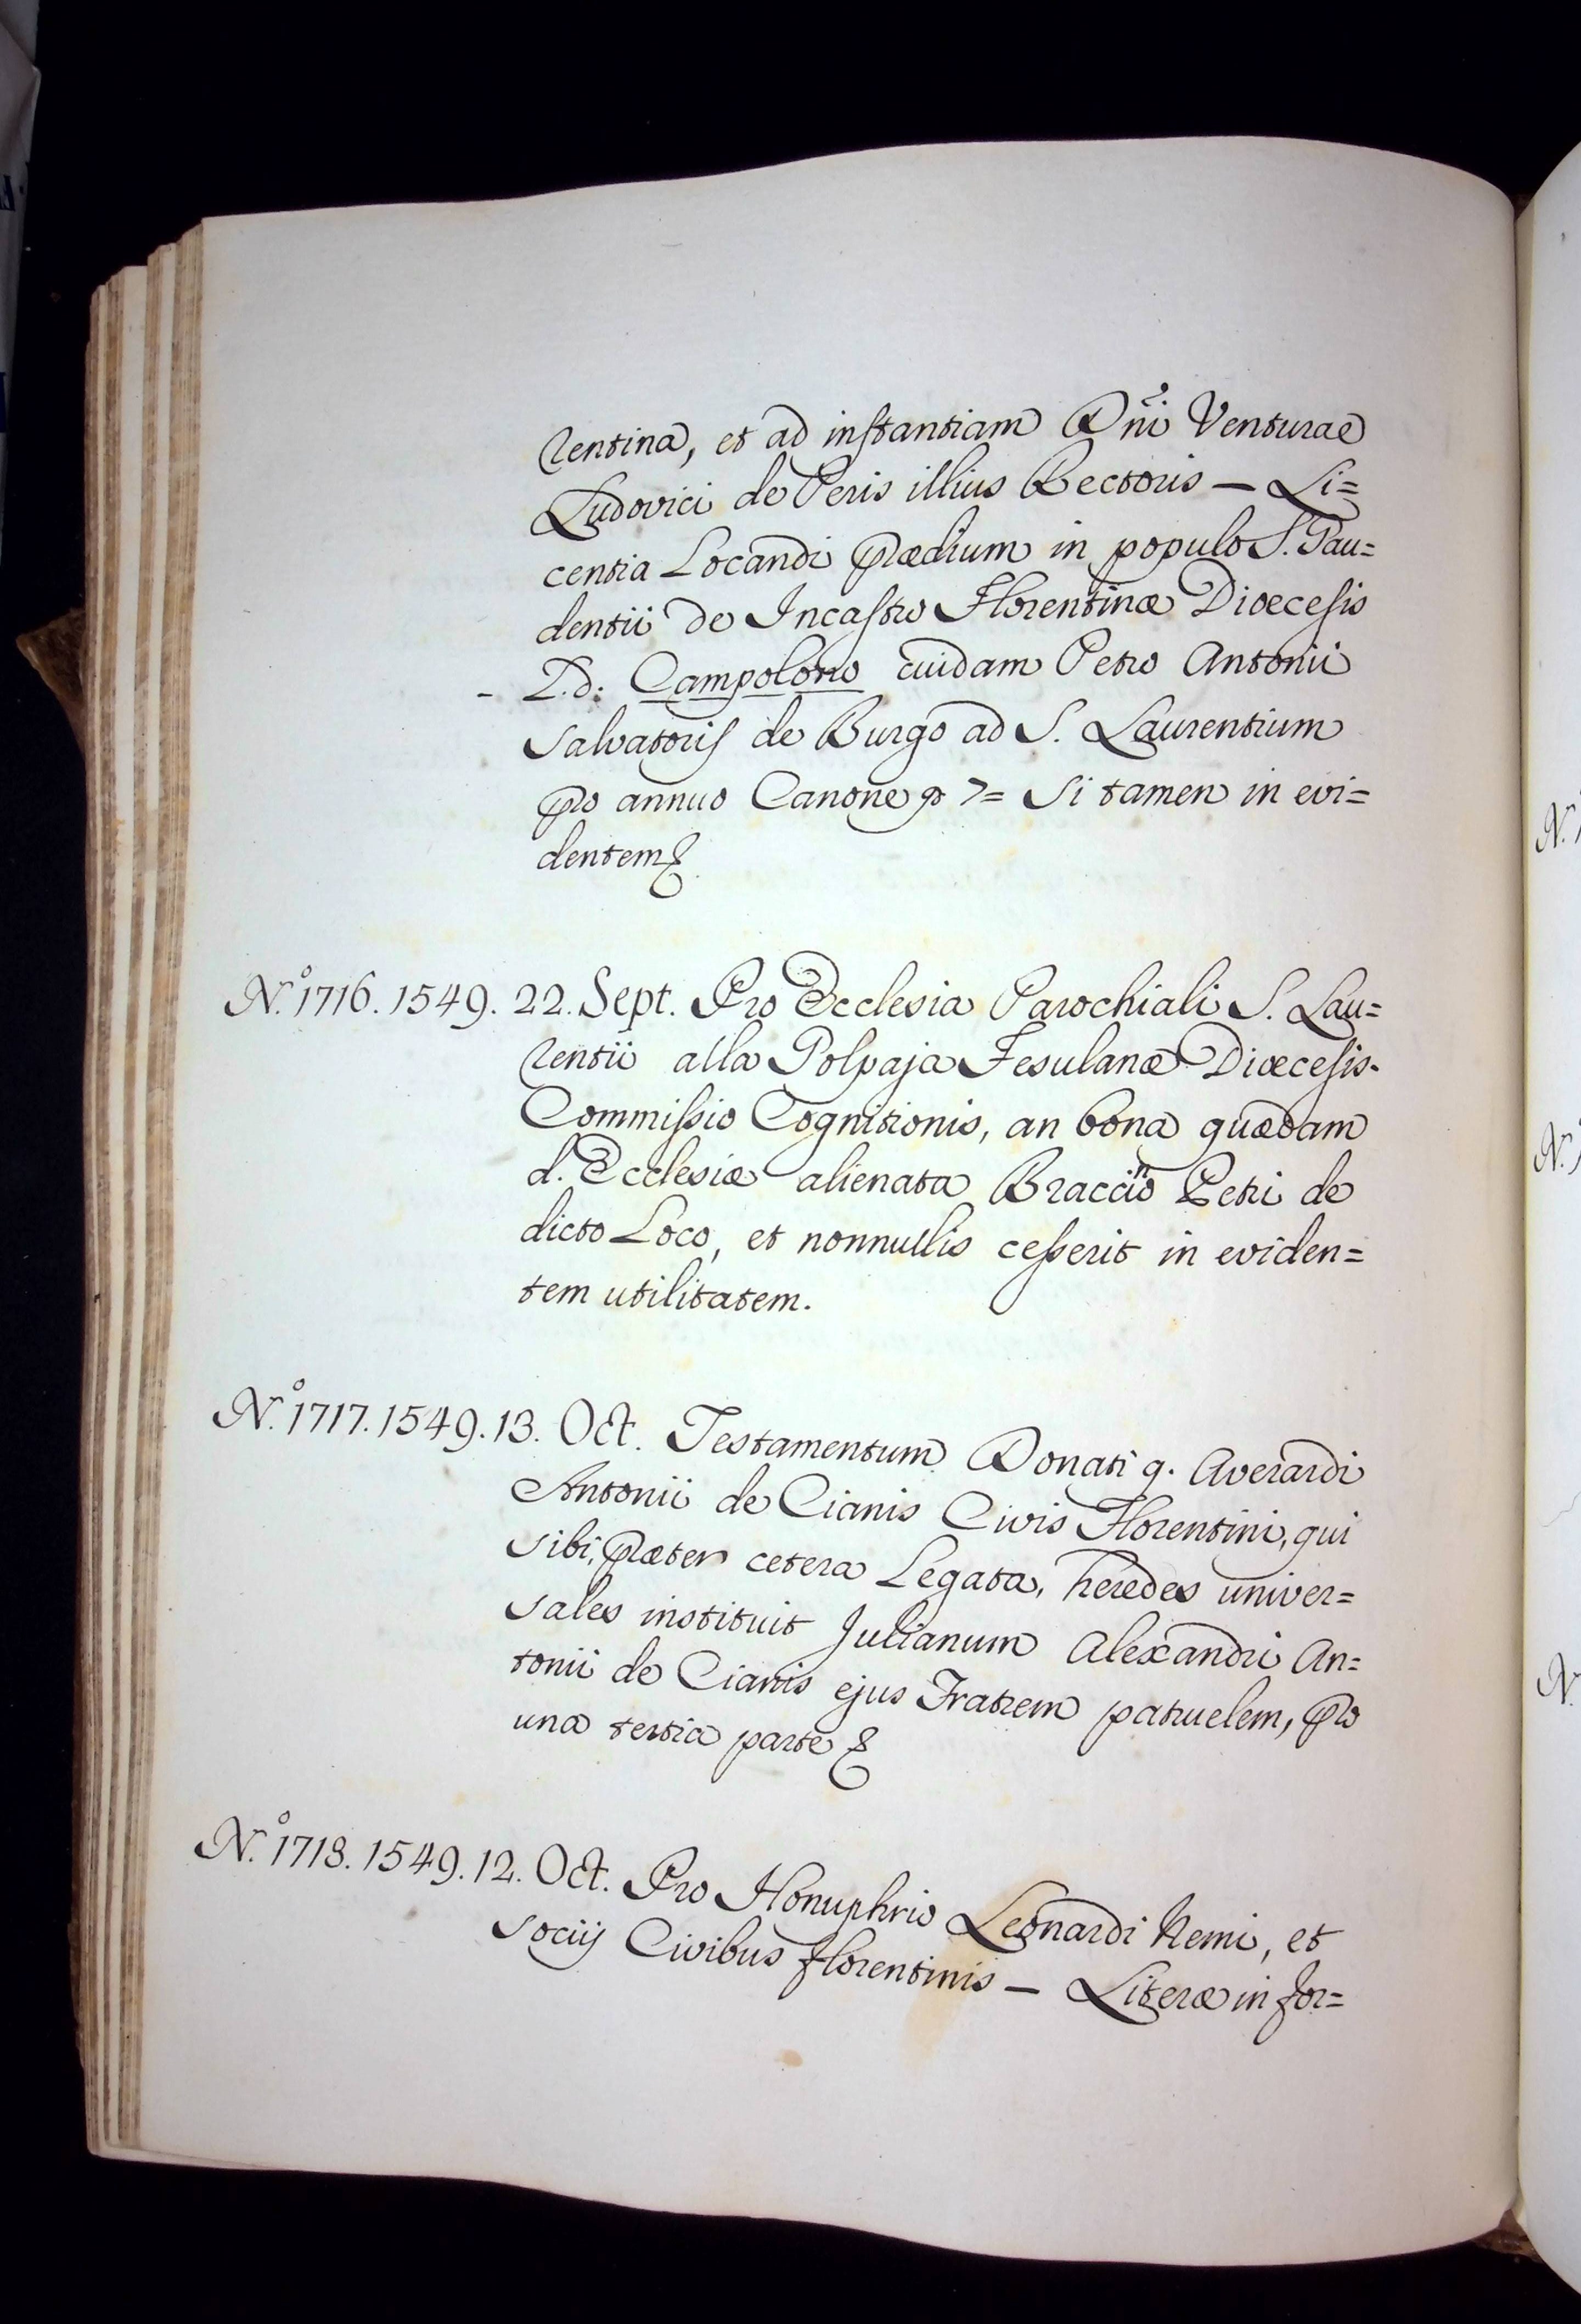 rentina, et ad instantiam Dñi Venturae
Ludovici de Peris illius Rectoris — Li=
centia Locandi prædium in populo S. Gau=
dentii de Incastro Florentinæ Diœcesis
- L.d. Campolono cuidam Petro Antonii
Salvatoris de Burgo ad S. Laurentium
pro annuo Canone 7= Si tamen in evi=
dentem &
N.º 1716. 1549. 22. Sept. Pro Ecclesia Parochiali S. Lau=
rentii alla Polpaja Fesulanæ Diœcesis.
Commissio Cognitionis, an bona quædam
d. Ecclesiæ alienata Braccino Petri de
dicto Loco, et nonnullis cesserit in eviden=
tem utilitatem.
N.º 1717. 1549. 13. Oct. Testamentum Donati q. Averardi
Antonii de Cianis Civis Florentini, qui
sibi, præter cetera Legata, heredes univer=
sales instituit Julianum Alexandri An=
tonii de Cianis ejus Fratrem patruelem, pro
una tertia parte &
N.º 1718. 1549. 12. Oct. Pro Honuphrio Leonardi Nemi, et
Sociis Civibus florentinis — Literæ in for=
N.
N.
N.